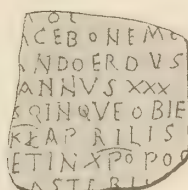 OL
ACEBONEMO
NDOERDVS
ANNVS XXX
SQINQVE OBIE
KLAPRILIS
ETINXPOPO
ASTERII